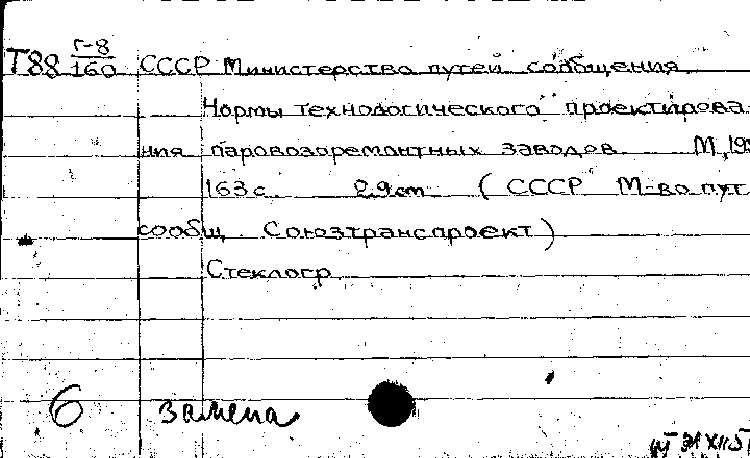 Т88 Г-8/160 СССР Министерство путей сообщения.
Нормы технологического проектирова
ния паровозоремонтных заводов. М, 195
163 с. 29 см (СССР М-во пут
сообщ. Союзтранспроект)
Стеклогр.
6 замена